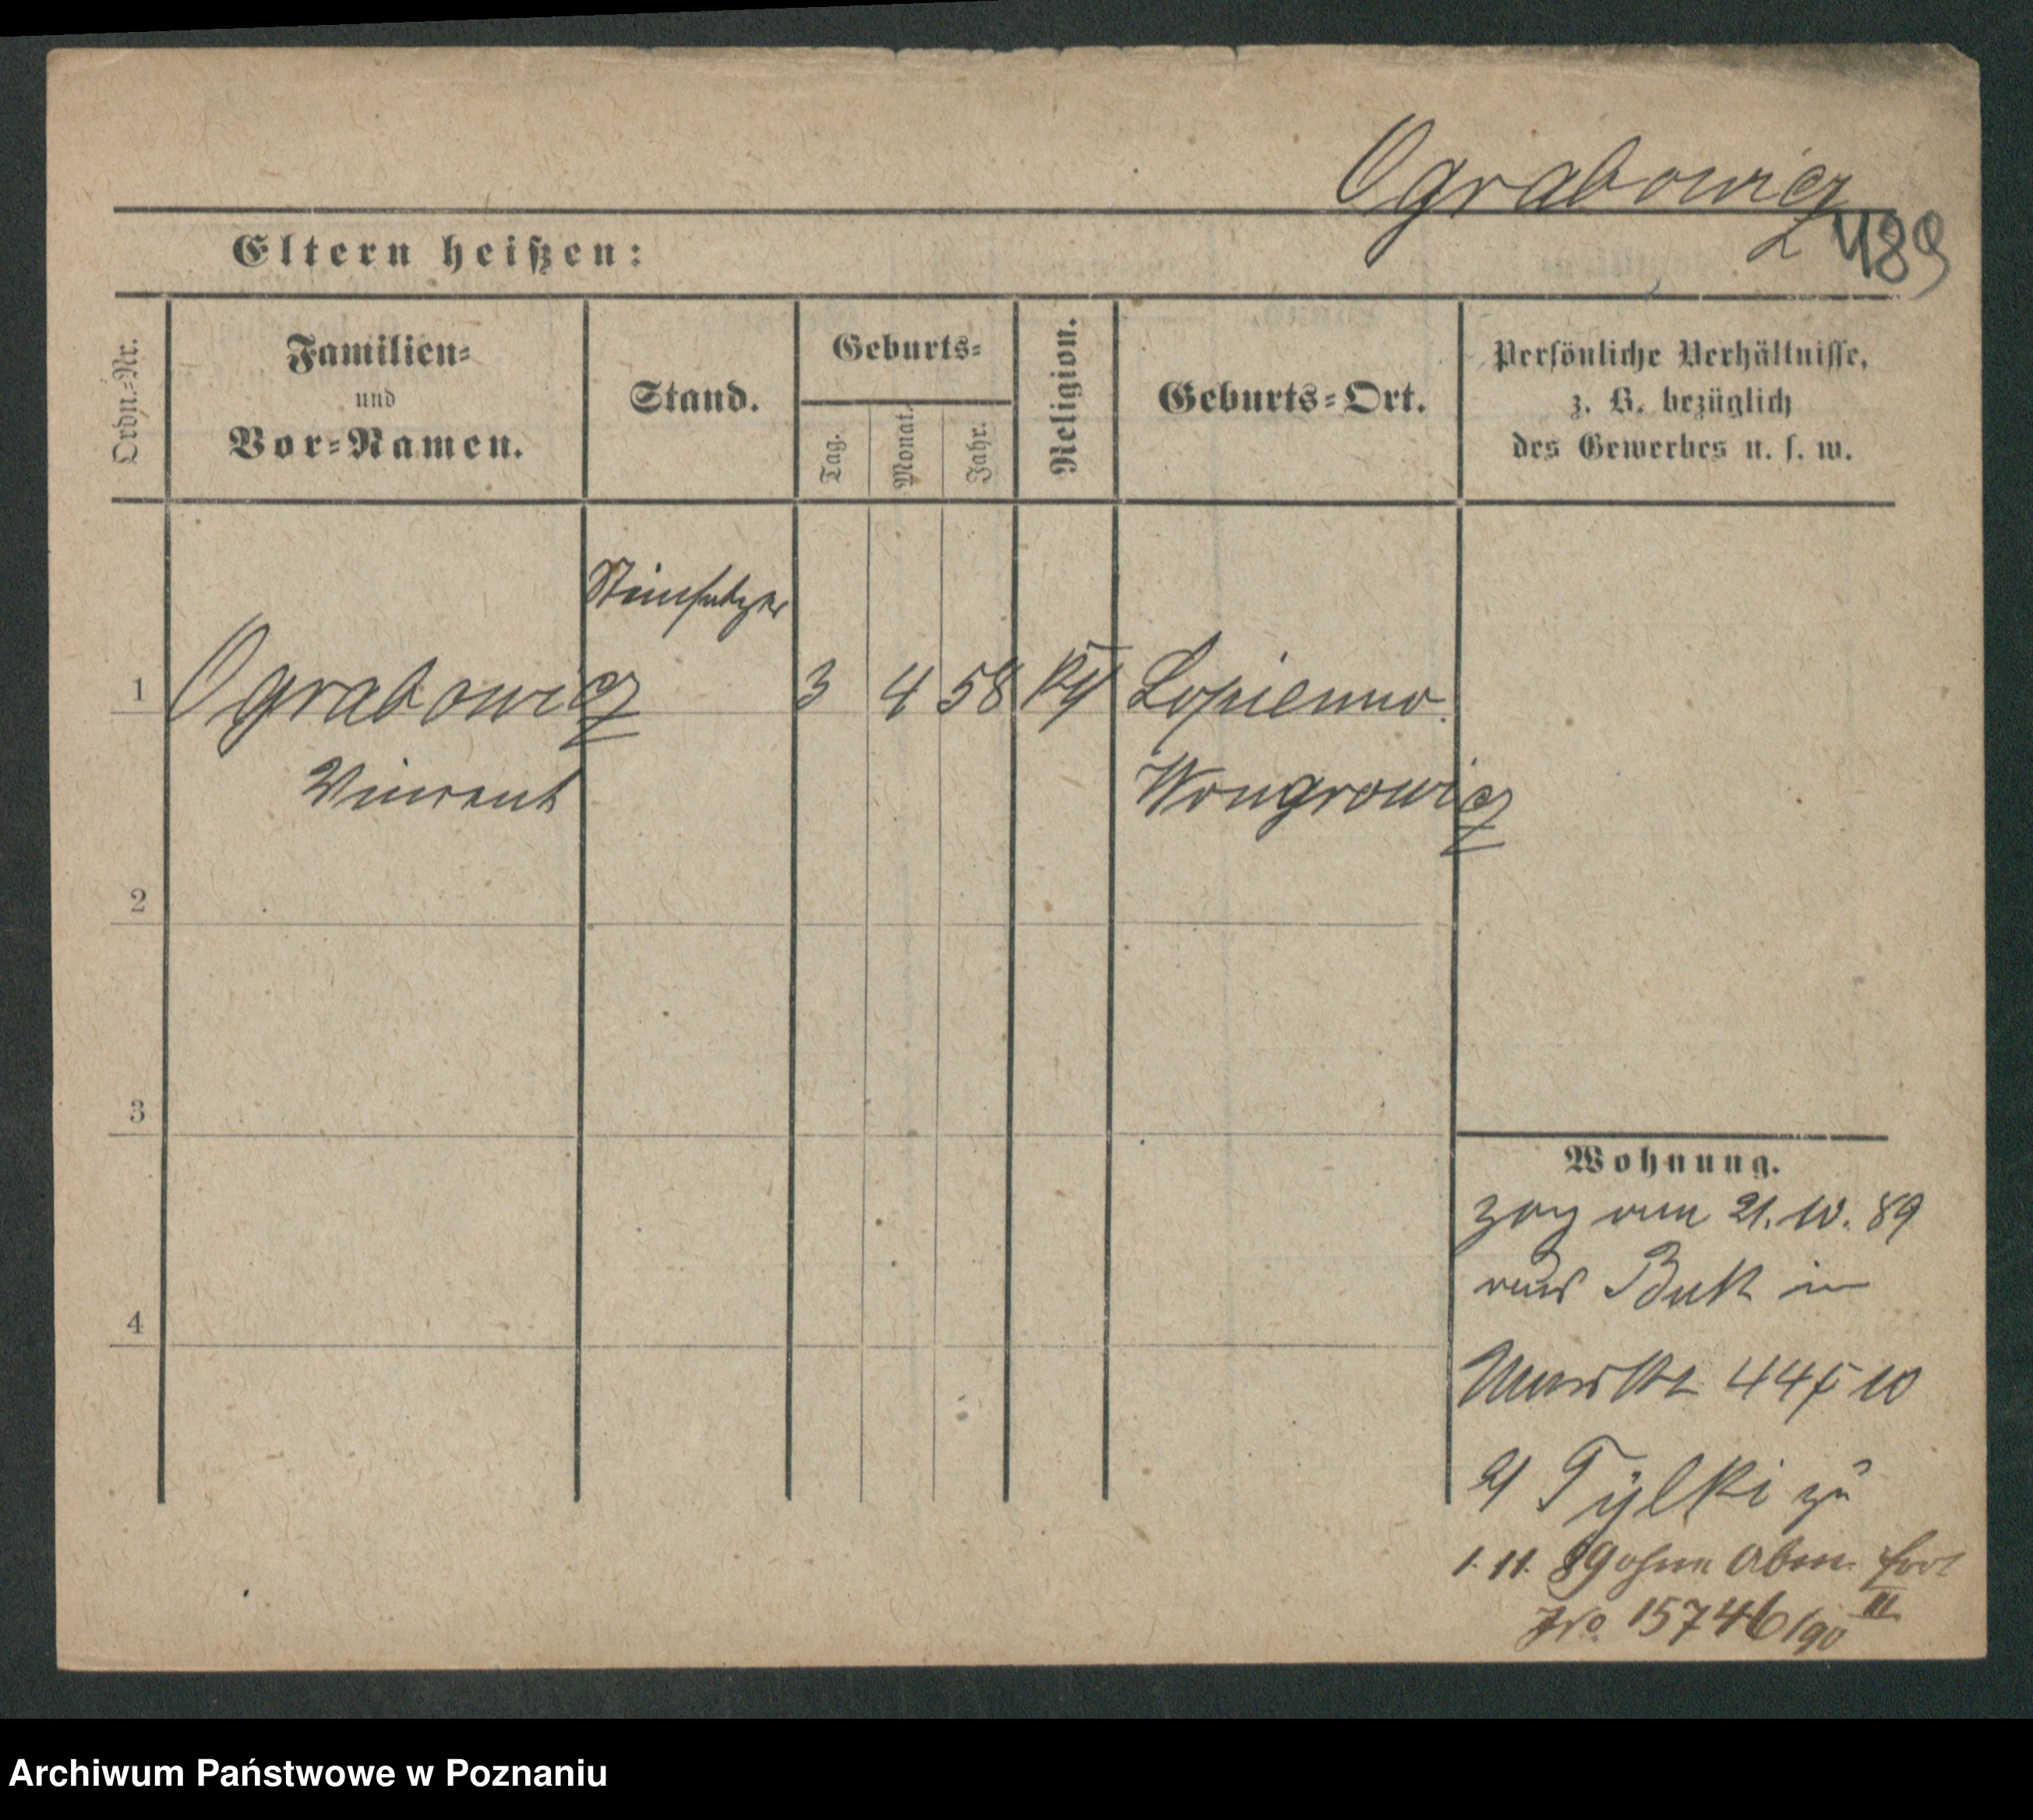 Ograbowicz
489
Eltern heißen:
Ordn.-Nr.
Familien-
und
Vor-Namen.
Stand.
Geburts-
Tag.
Monat.
Jahr.
Religion.
Geburts-Ort.
Persönliche Verhältnisse,
z. B. bezüglich
des Gewerbes u. s. w.
Steinsetzer
1 Ograbowicz 3 4 58 Lopienno.
Vincent Wongrowicz
2
3
4
Wohnung.
zog am 21. 10. 89
aus Buk in
44 10
Tylki zu
1. 11. 89 ohne Abm. fort
No. 15746/90 III